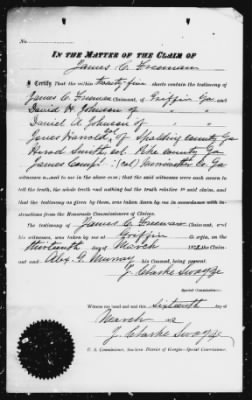 No.
IN THE MATTER OF THE CLAIM OF
James C. Freeman
I Certify That the within twenty five sheets contain the testimony of
James C. Freeman Claimant, of Griffin Ga
David H Johnson of " "
Daniel A Johnson of " "
James Harrold, col of Spalding County Ga
Herod Smith, col Pike County Ga
James Camp (col) Ga
witnesses, and to me in the above case; that the said witnesses were each sworn to
tell the truth, the whole truth and nothing but the truth relative to said claim, and
that the testimony as given by them, was taken down by me in accordance with in-
structions from the Honorable Commissioners of Claims.
The testimony of James C. Freeman Claimant, and
his witnesses, was taken by me at Griffin Georgia, on the
thirteenth day of March 187
and Alex. G. Murray his Counsel, being present.
J. Clarke Swayze
Witness my hand and seal this sixteenth day of
March 187
J. Clarke Swayze
U. S. Commissioner, Southern District of Georgia—Special Commissioner.